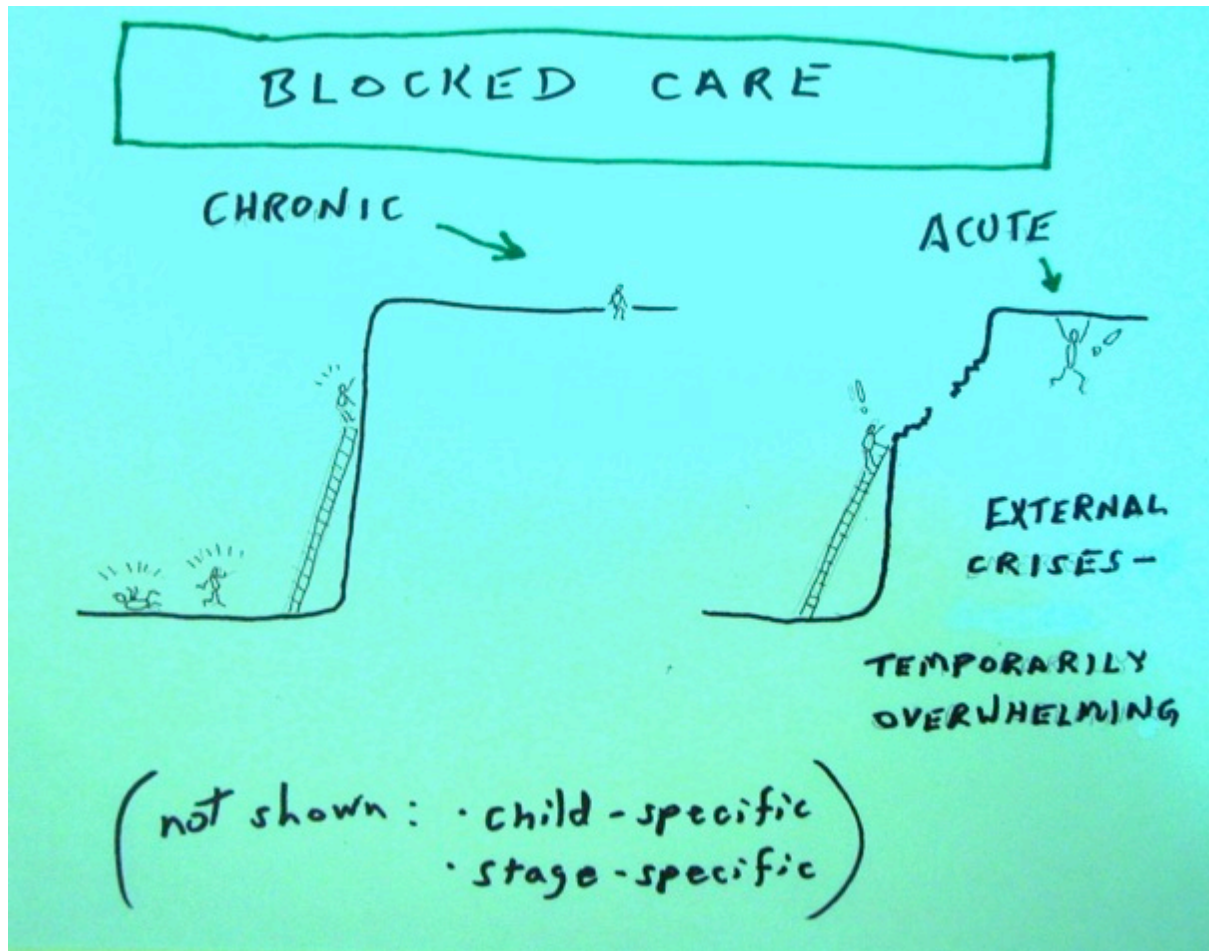 BLOCKED CARE
CHRONIC
ACUTE
EXTERNAL
CRISES-
TEMPORARILY
OVERWHELMING
(not shown: · child-specific
· stage-specific)